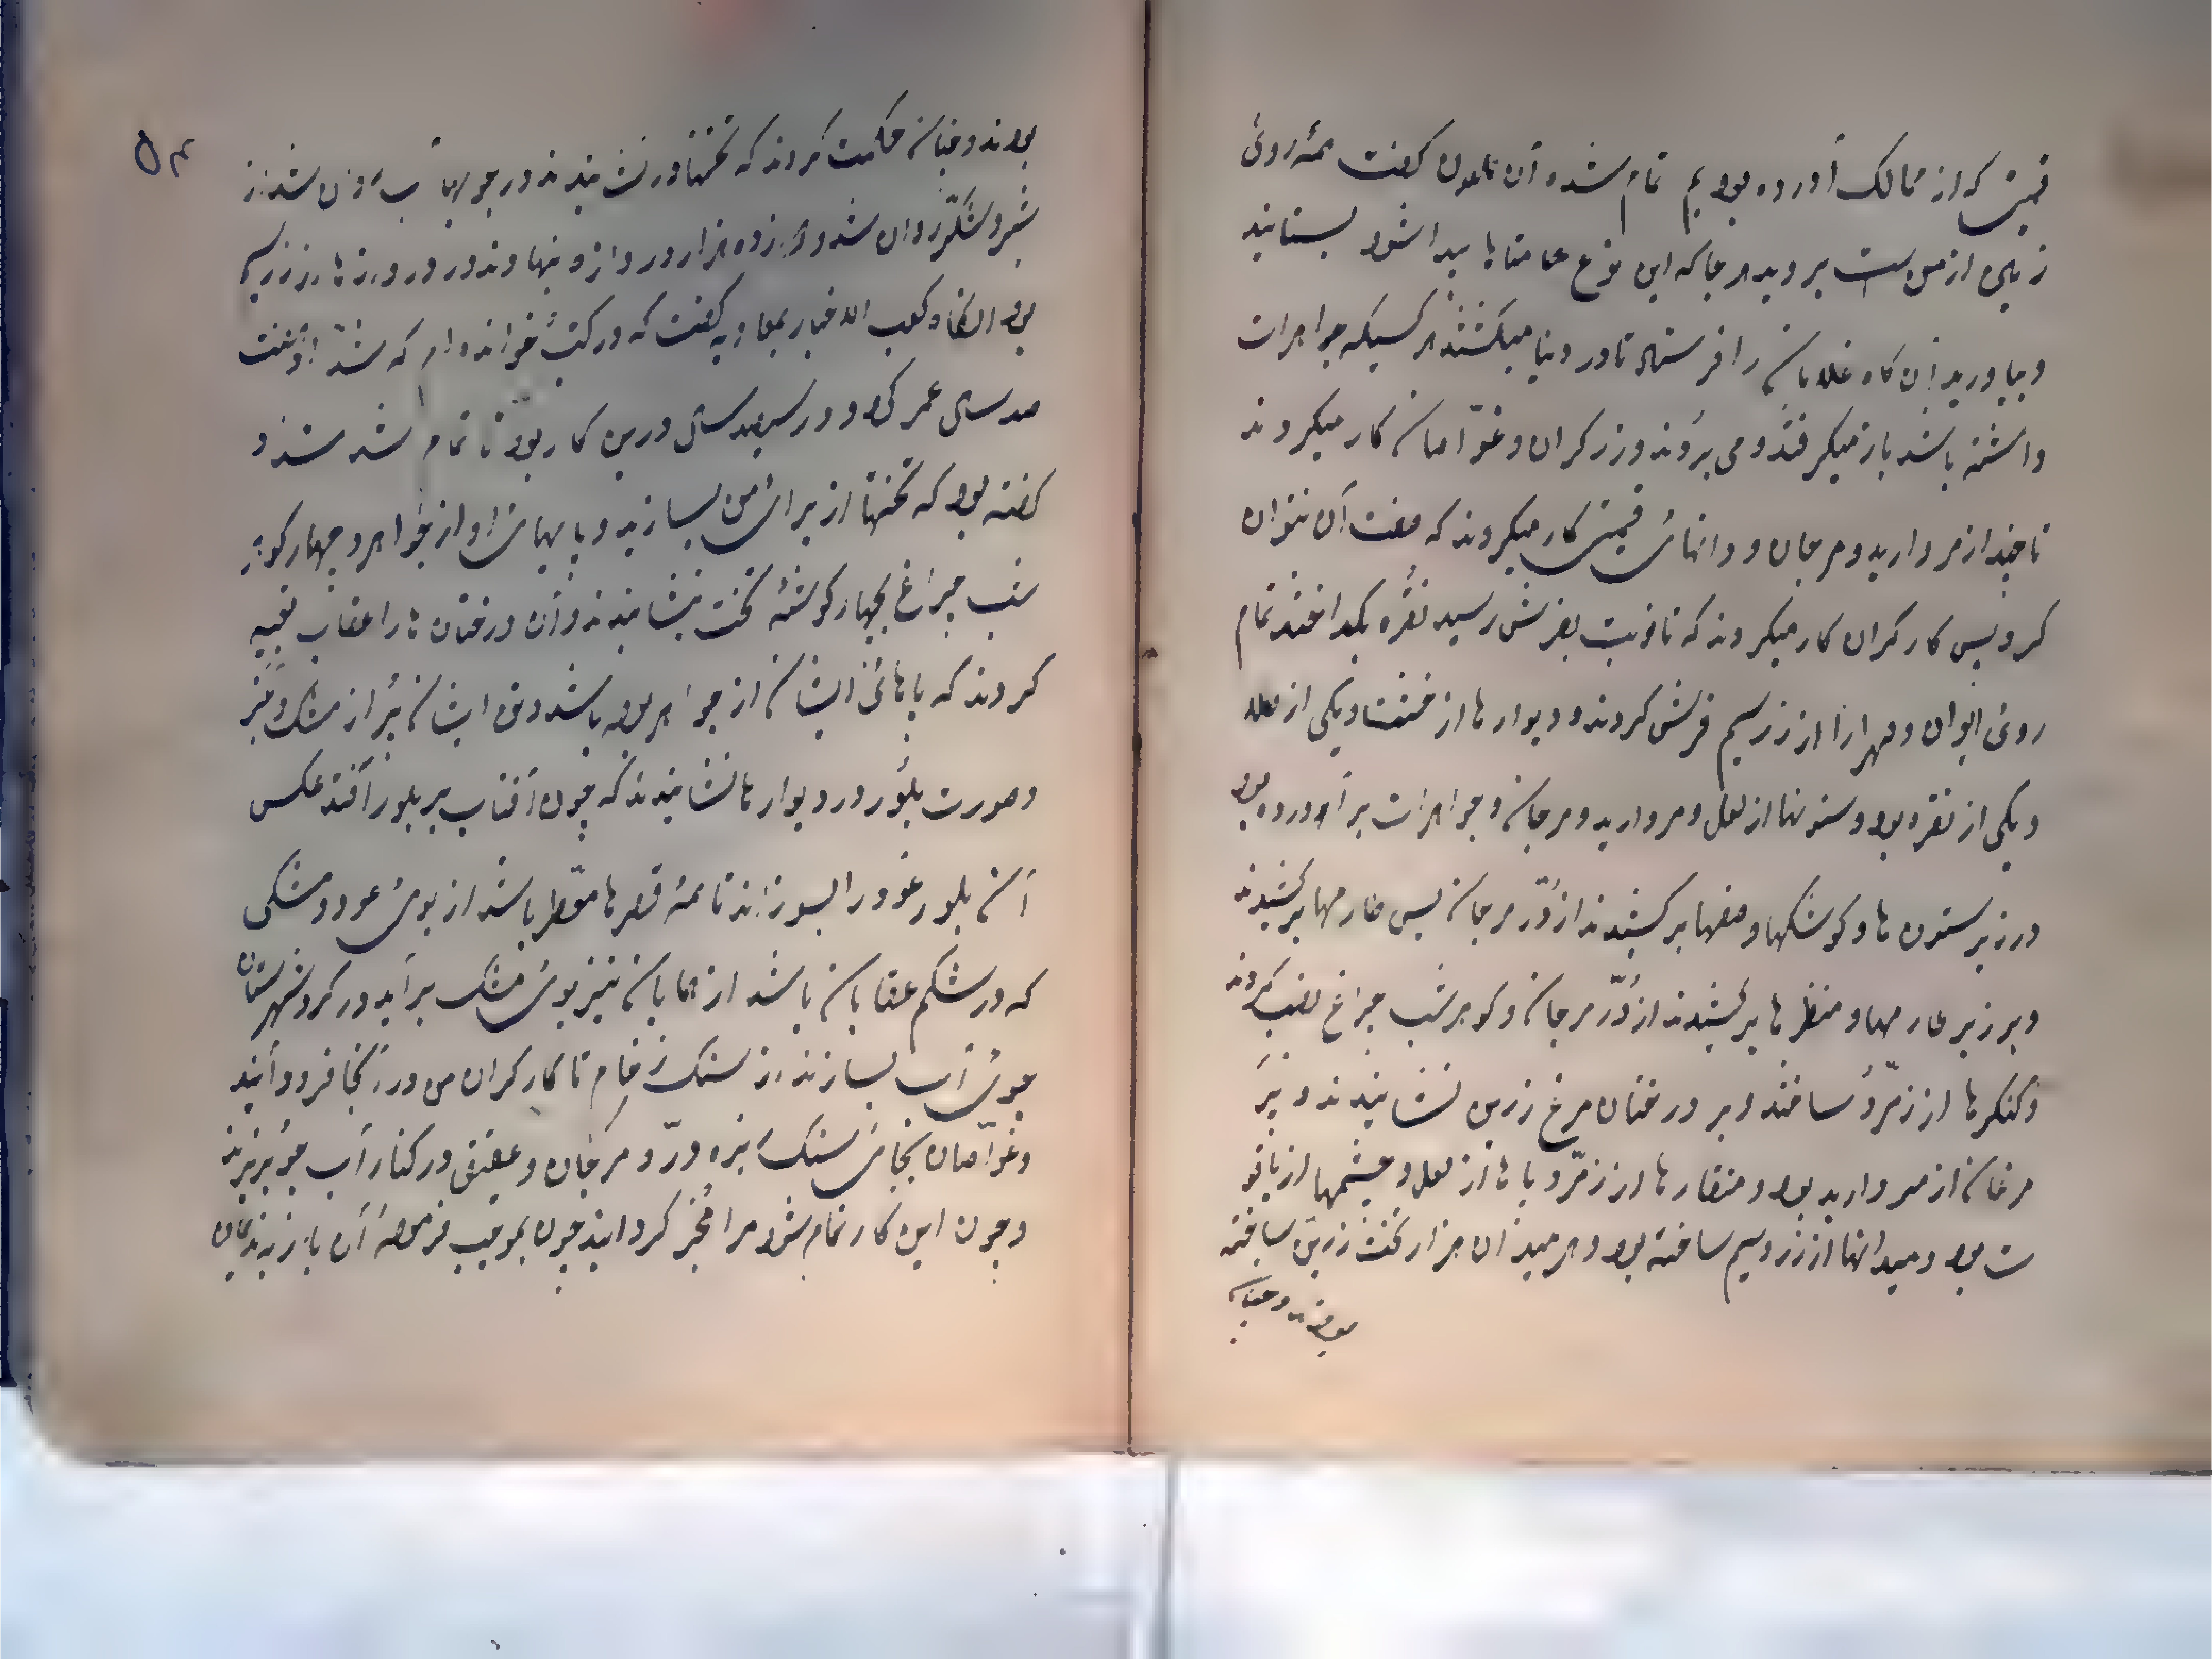 قیمتی که از ممالک آورده بودیم تمام شده آن ملعون کفت همه روئ
زمین از من ست بروید هر جا که این نوع متاعها پیدا شود بستانید
و بیاورید آن کاه غلامان را فرستاد تا در دنیا میکشتند هر کسیکه جواهرات
داشته باشد باز میکرفتند و می بردند و زرکران و غوّاصان کار میکردند
تا چند از مروارید و مرجان و دانهائ قیمتی کار میکردند که صفت آن نتوان
کرد پس کارکران کار میکردند که تا نوبت بفرش رسید نقره بکداختند تمام
روئ ایوان و از زر سیم فرش کردند و دیوارها از خشت یکی از طلا
و یکی از نقره بود و ستونها از لعل و مروارید و مرجان و جواهرات برآورده بود
و در زیر ستون ها و کوشکها و صفها برکشیدند از دُرّ مرجان پس برکشیدند
و بر زیر و منظرها برکشیدند از دُرّ مرجان و کوهر شب چراغ نصب کردند
و کنکرها از زمرّد ساختند و بر درختان مرغ زرین نشانیدند و پر
مرغان از مروارید بود و منقارها از زمرّد و پاها از لعل و چشمها از یاقو
ت بود و میدانها از زر و سیم ساخته بود و هر میدان هزار تخت زرین ساخته
بودند و چنان
۵۳
بودند و چنان حکمت کردند که تختها در نشانیدند در جویها آب روان شد از
شیر و شکر روان شد و دوازده هزار دروازه نهادند و در دروازها از زر سیم
بود آن کاه کعب الاخبار بمعاویه کفت که در کتب خوانده ام که شدّاد هفت
صد سال عمر کرد و در سیصد سال درین کار بود تا تمام شد شدّاد
کفته بود که تختها از برائ من بسازید و پایهائ او از جواهر و چهار کوهر
شب چراغ بچهار کوشهٔ تخت بنشانیدند و آن درختان ها را عقاب تعبیه
کردند که پاهائ ایشان از جواهر بوده باشد و تن ایشان پُر از مشک و عنبر
و صورت بلّور در دیوارها نشانیدند که چون آفتاب بر بلور افتد عکس
آن بلور عود را بسوزاند تا همه قصرها معطر باشد از بوئ عود و مشکی
که در شکم عقابان باشد از همایان نیز بوئ مشک برآید و در کرد شهرستان
جوئ آب بسازند از سنک رخام تا کارکران من در آنجا فرود آیند
و غوّاصان بجائ سنک ریزه درّ و مرجان و عقیق در کنار آب جو بریزند
و چون این کار تمام شود مرا مخبر کردانید چون بموجب فرمودهٔ آن